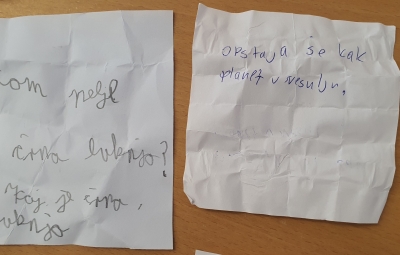 nom pelje
črna luknja?
Kaj je črna
luknja
obstaja še kak
planet v vesolju,